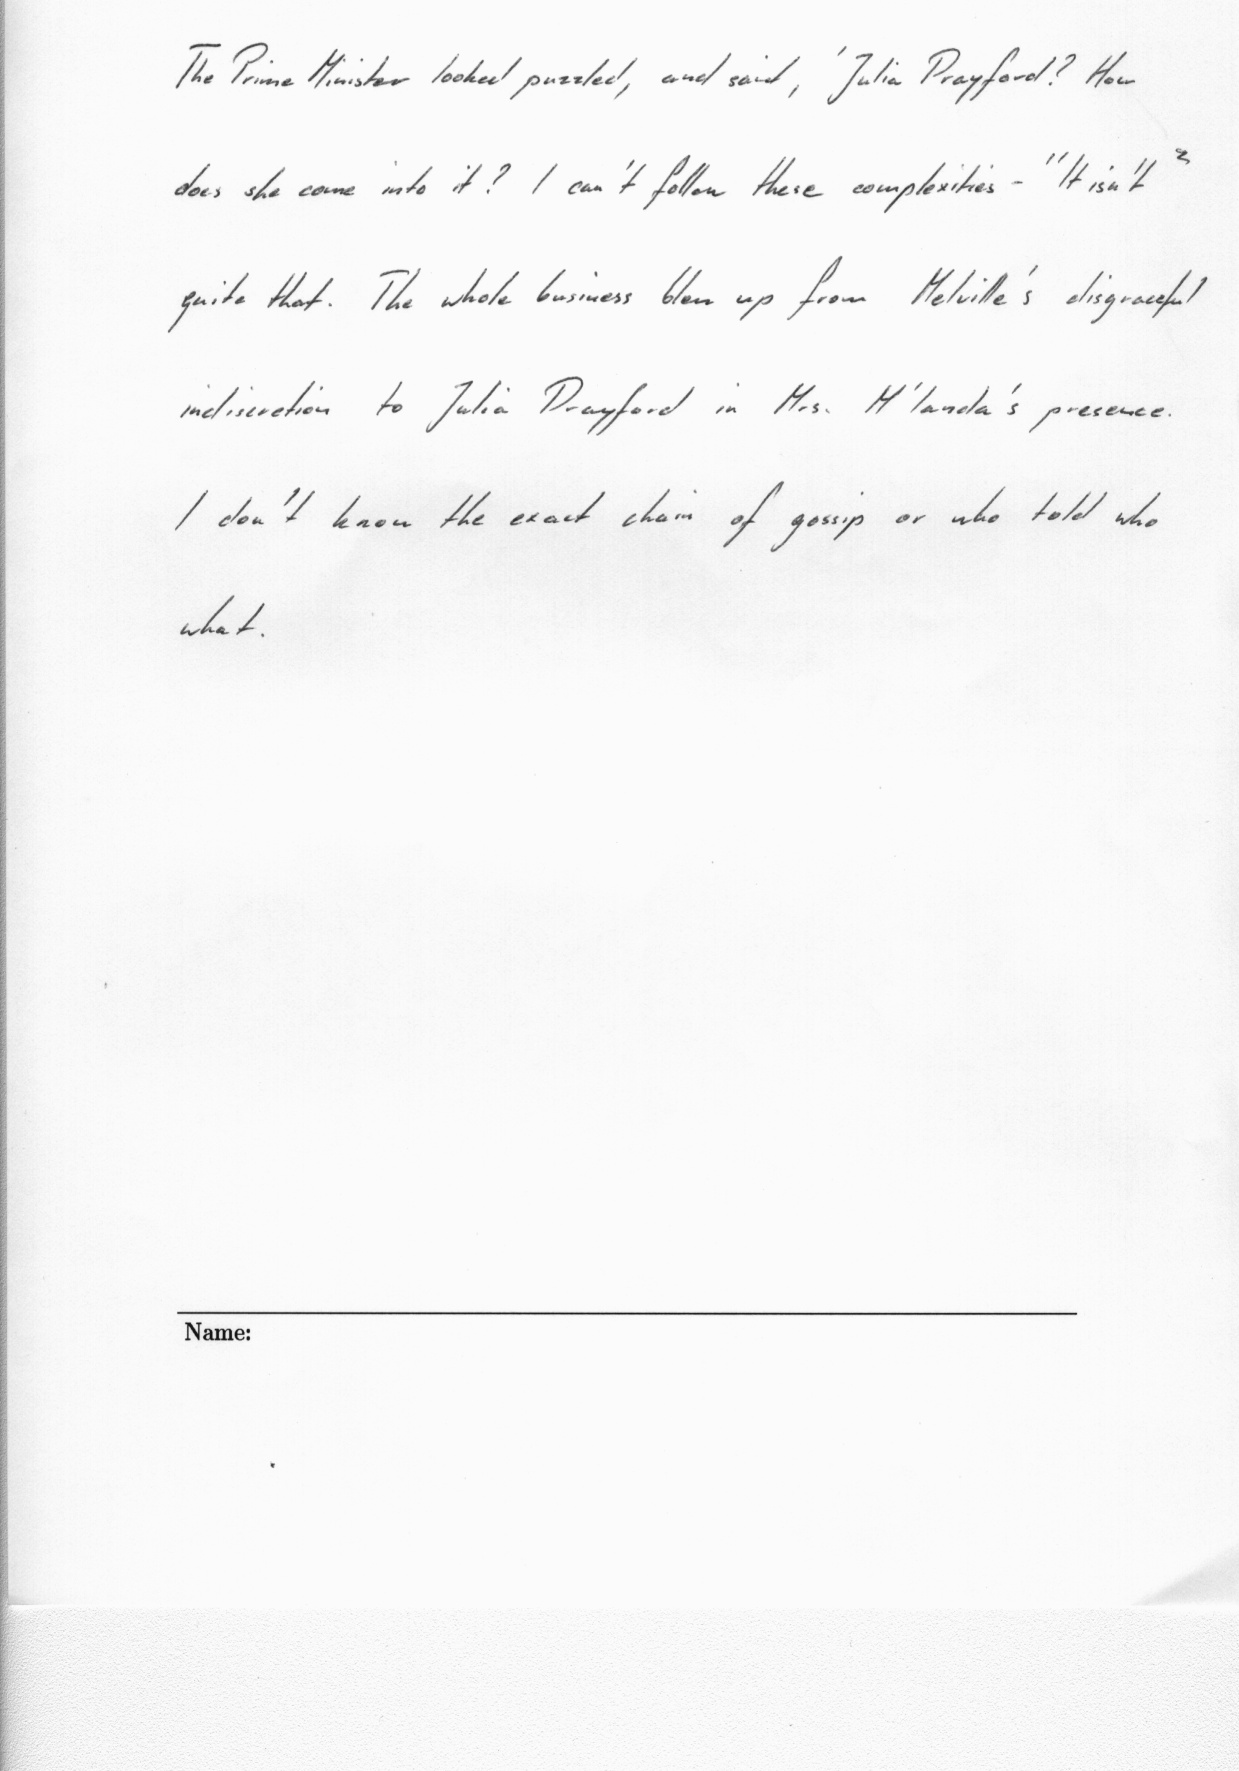 The Prime Minister looked puzzled, and said, 'Julia Drayford? How
does she come into it? I can't follow these complexities - "It isn't
quite that. The whole business blew up from Melville's disgraceful
indiscretion to Julia Drayford in Mrs. M'landa's presence.
I don't know the exact chain of gossip or who told who
what.
Name: